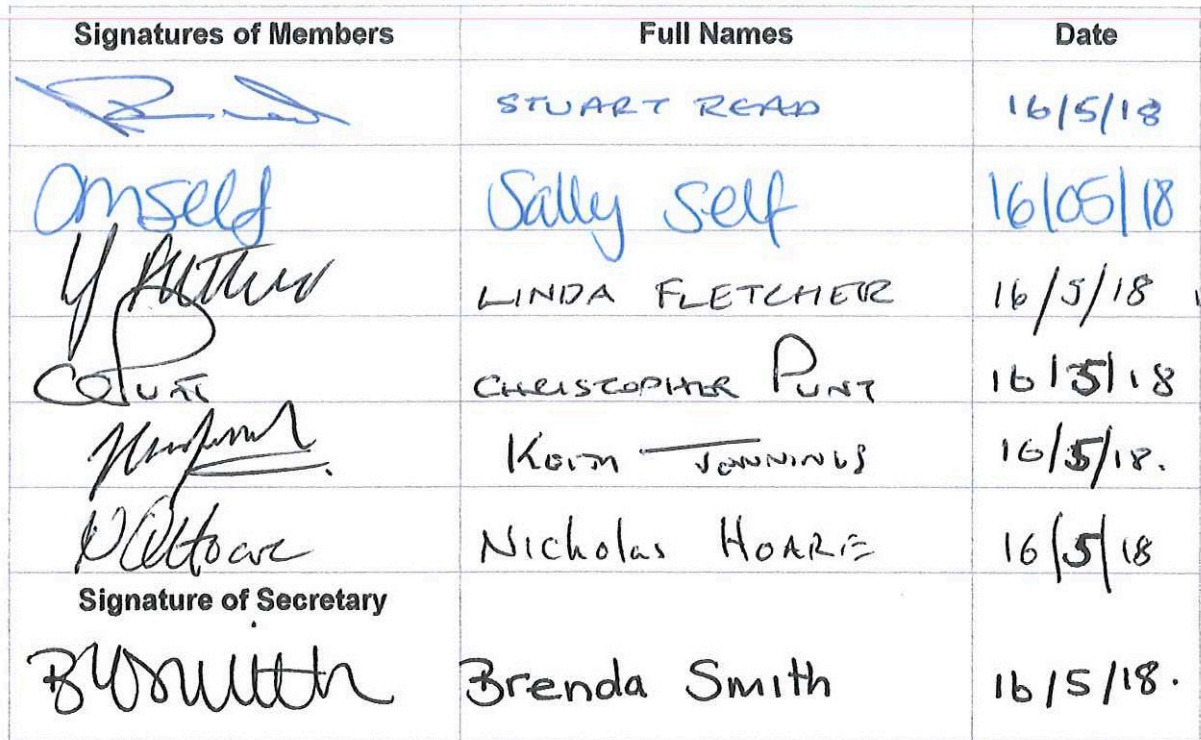 Signatures of Members Full Names Date
STUART READ 16/5/18
Omself Sally Self 16/05/18
LINDA FLETCHER 16/5/18
CHRISTOPHER PUNT 16/5/18
KEITH JENNINGS 16/5/18.
Nicholas HOARE 16/5/18
Signature of Secretary
Brenda Smith 16/5/18.